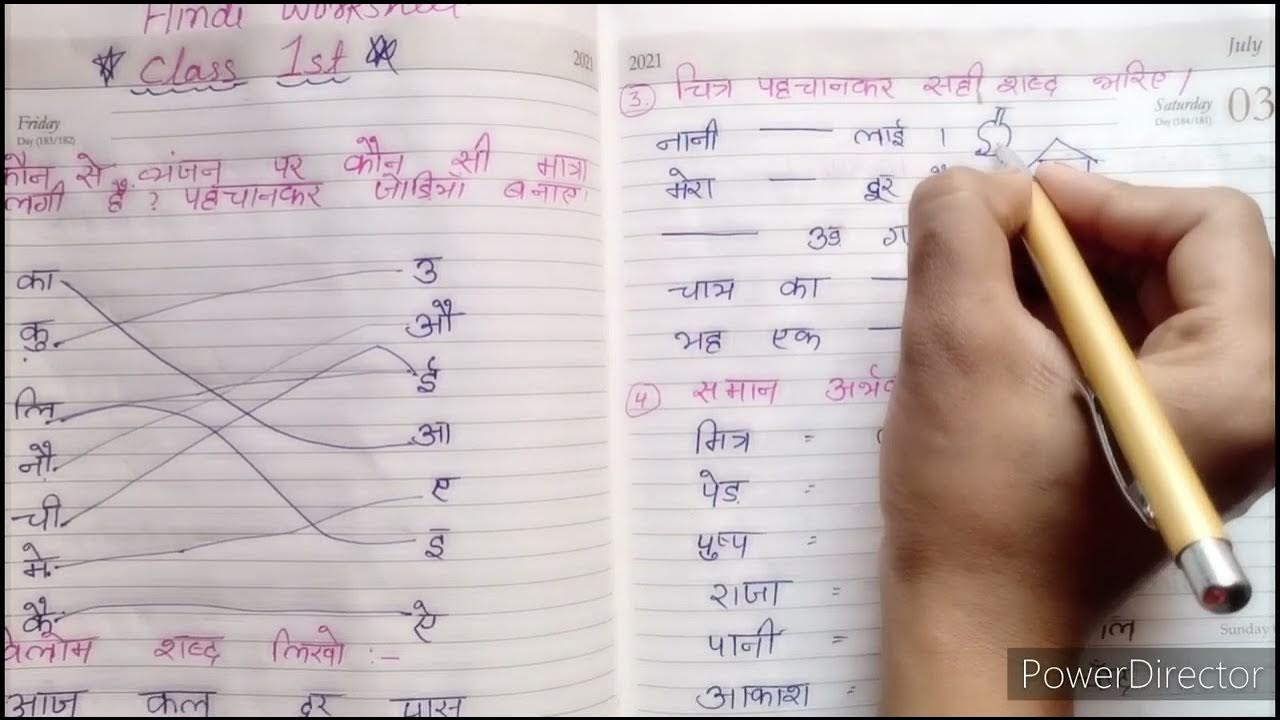 Hindi Worksheet
Class 1st
2021
Friday
Day (183/182)
कौन से व्यंजन पर कौन सी मात्रा
लगी है? पहचानकर जोड़ियां बनाए।
का उ
कु औ
लि ई
नौ आ
ची ए
मे इ
कै ऐ
विलोम शब्द लिखो :-
आज कल दूर पास
2021
July
Saturday
Day (184/181)
03
3. चित्र पहचानकर सही शब्द भरिए।
नानी — लाई।
मेरा — दूर
— उड़
चाय का —
यह एक —
4 समान
मित्र =
पेड़ =
पुष्प =
राजा =
पानी =
आकाश =
Sunday
PowerDirector